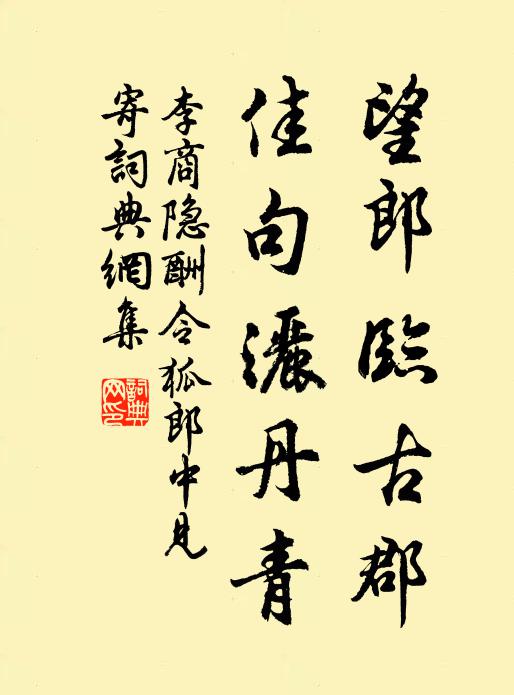 望郎臨古郡
佳句灑丹青
李商隐酬令狐郎中見
寄詞典網集
詞典
网印